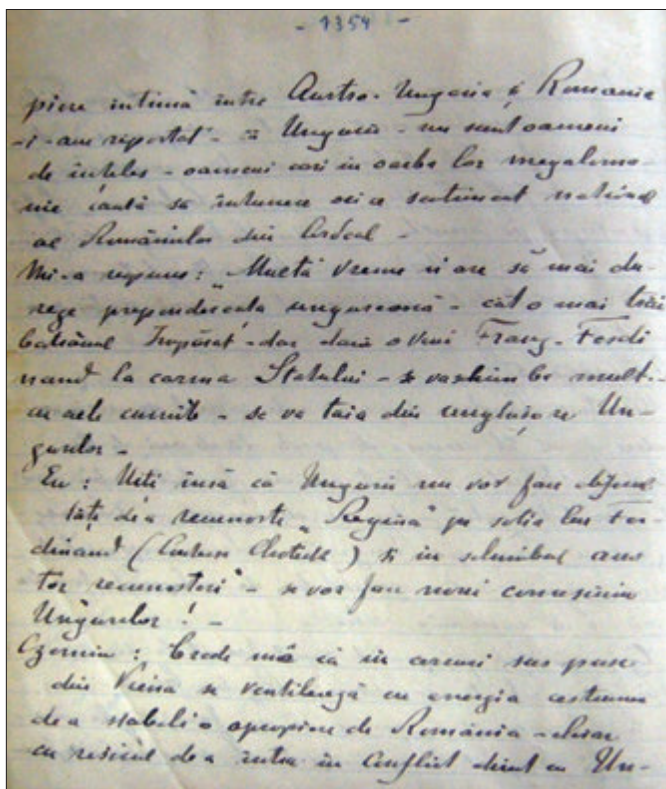 - 1354 -
piere intimă între Austro-Ungaria și România
-i-am repostat - că Ungurii - nu sunt oameni
de înțeles - oameni cari in oarba lor megaloma-
nie caută să întunece orice sentiment național
al Românilor din Ardeal -
Mi-a repuns: "Multă vreme n'are să mai du-
rege preponderența ungurească - cât o mai trăi
batrânul Împărat - dar dacă o veni Franz-Ferdi
nand la carma Statului - se va schimba mult -
cu alte cuvinte - se va taia din unghiușre Un-
gurilor -
Eu: Uiti însă că Ungurii nu vor face
de a recunoste "Regină" pe sotia lui Fer-
dinand (Contesa Chotek) și in schimbul aces
tor recunosteri" - se vor face noui concesiuni
Ungurilor! -
Czernin: Crede mă că in cercuri sus puse
din Viena se ventilează cu energie cestiunea
de a stabili o apropiere de România - chiar
cu riscul de a intra in Conflict chiar cu Un-